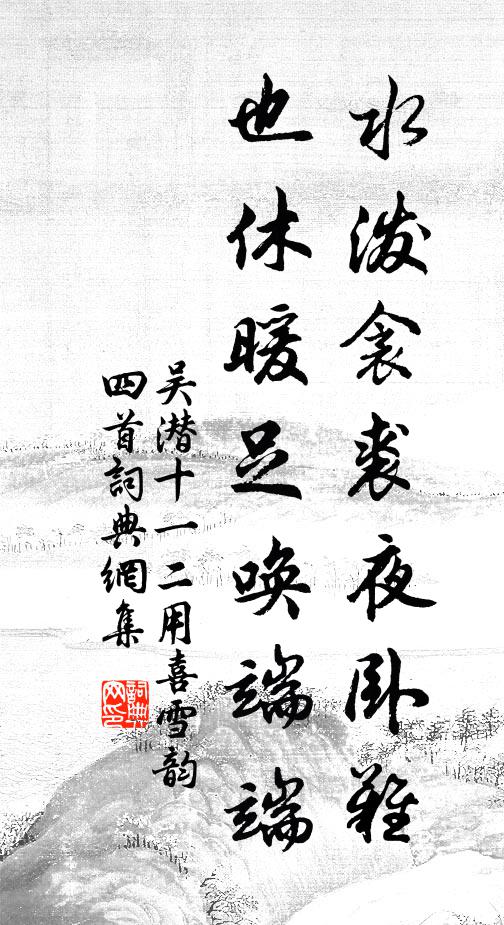 水泼衾裘夜卧難
也休暖足唤端端
吴潜十一二用喜雪韵
四首詞典網集
詞典网印